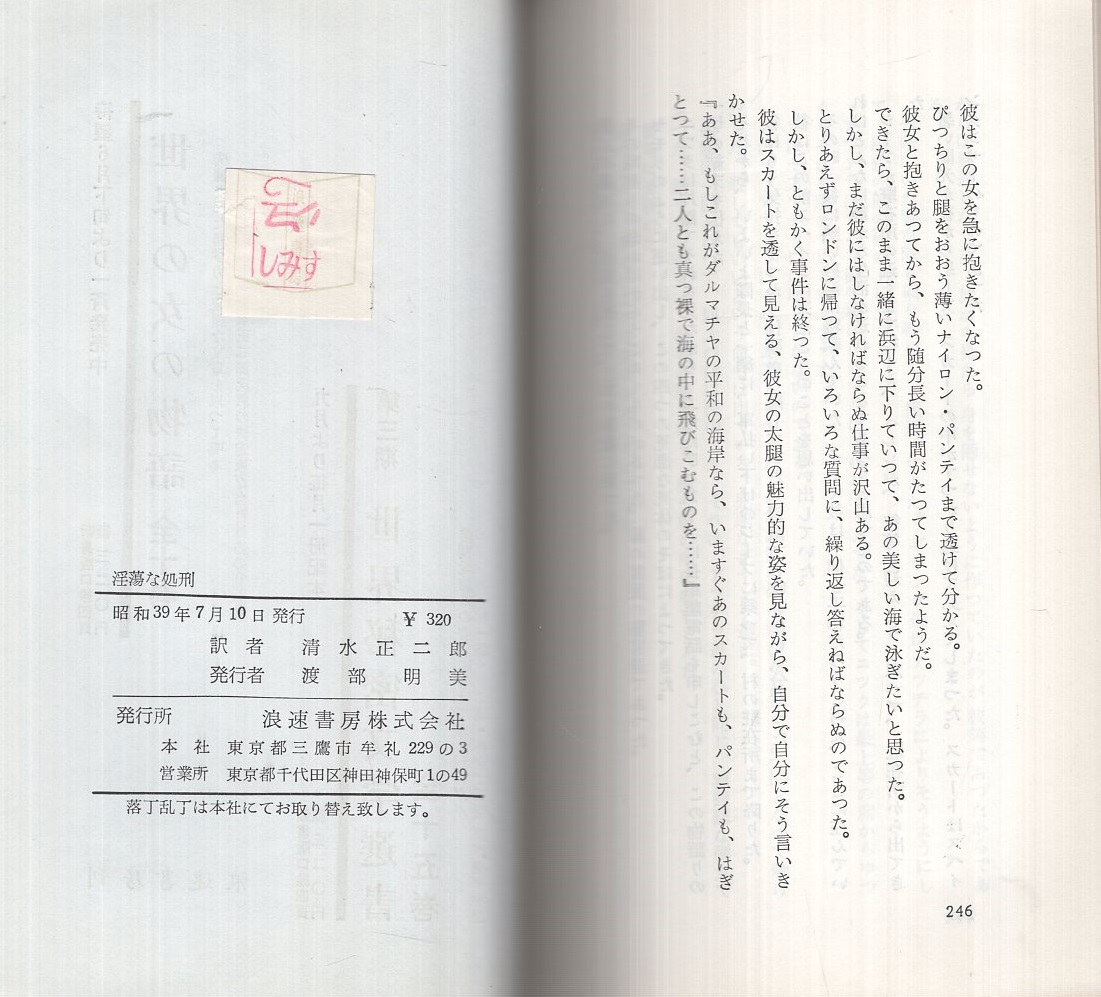 彼はこの女を急に抱きたくなつた。
ぴつちりと腿をおおう薄いナイロン・パンテイまで透けて分かる。
彼女と抱きあつてから、もう随分長い時間がたつてしまつたようだ。
できたら、このまま一緒に浜辺に下りていつて、あの美しい海で泳ぎたいと思つた。
しかし、まだ彼にはしなければならぬ仕事が沢山ある。
とりあえずロンドンに帰つて、いろいろな質問に、繰り返し答えねばならぬのであつた。
しかし、ともかく事件は終つた。
彼はスカートを透して見える、彼女の太腿の魅力的な姿を見ながら、自分で自分にそう言いき
かせた。
『ああ、もしこれがダルマチヤの平和の海岸なら、いますぐあのスカートも、パンテイも、はぎ
とつて……二人とも真つ裸で海の中に飛びこむものを……』
246
しみす
淫蕩な処刑
昭和39年7月10日発行 ¥320
訳者 清水正二郎
発行者 渡部明美
発行所 浪速書房株式会社
本社 東京都三鷹市牟礼229の3
営業所 東京都千代田区神田神保町1の49
落丁乱丁は本社にてお取り替え致します。